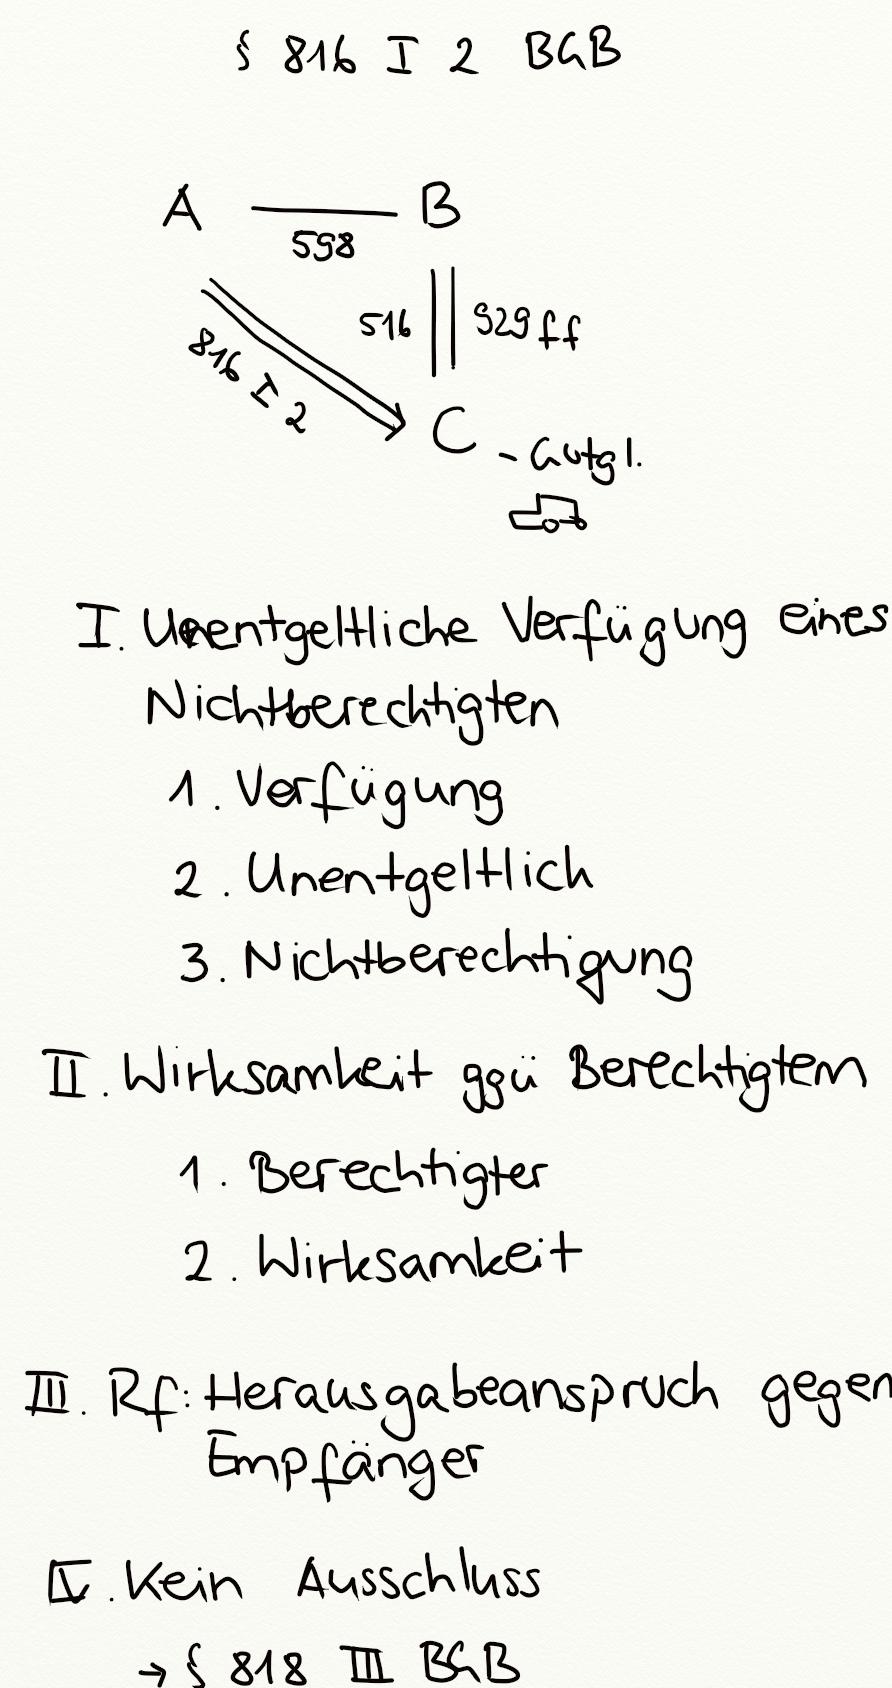 § 816 I 2 BGB
A B
598
516 929 ff
816 I 2
C - Gutgl.
I. Unentgeltliche Verfügung eines
Nichtberechtigten
1. Verfügung
2. Unentgeltlich
3. Nichtberechtigung
II. Wirksamkeit ggü Berechtigtem
1. Berechtigter
2. Wirksamkeit
III. Rf: Herausgabeanspruch gegen
Empfänger
IV. Kein Ausschluss
→ § 818 III BGB